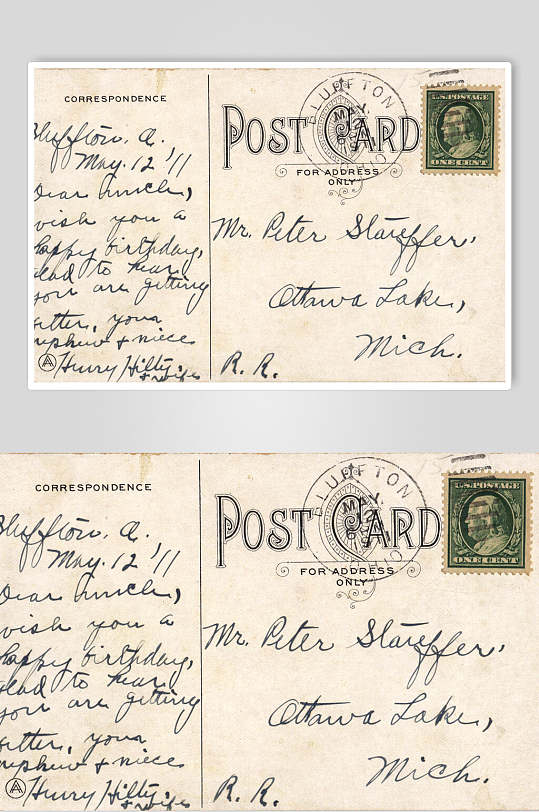 CORRESPONDENCE
Bluffton, O.
May. 12 '11
Dear Uncle,
wish you a
happy birthday,
glad to hear
you are getting
better, your
nephew & niece
Henry Hilty.
& wife
BLUFFTON
MAY
OHIO
POST CARD
FOR ADDRESS
ONLY
U.S. POSTAGE
ONE CENT
Mr. Peter Stauffer.
Ottawa Lake,
Mich.
R. R.
CORRESPONDENCE
Bluffton, O.
May. 12 '11
Dear Uncle,
wish you a
happy birthday,
glad to hear
you are getting
better, your
nephew & niece
Henry Hilty.
& wife
BLUFFTON
MAY
OHIO
POST CARD
FOR ADDRESS
ONLY
U.S. POSTAGE
ONE CENT
Mr. Peter Stauffer.
Ottawa Lake,
Mich.
R. R.